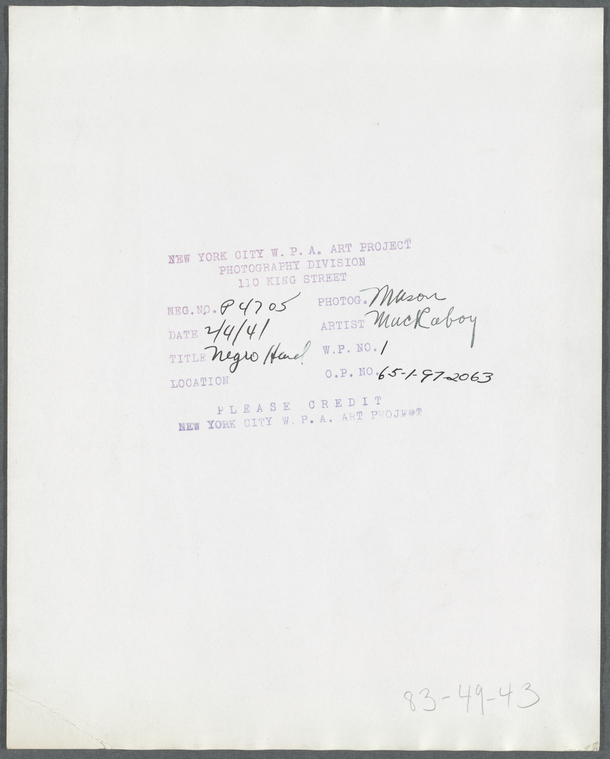 NEW YORK CITY W. P. A. ART PROJECT
PHOTOGRAPHY DIVISION
110 KING STREET
NEG. NO. P4705 PHOTOG. Mason
DATE 2/4/41 ARTIST MacKaboy
TITLE Negro Head W.P. NO. 1
LOCATION O.P. NO. 65-1-97-2063
PLEASE CREDIT
NEW YORK CITY W. P. A. ART PROJECT
83-49-43